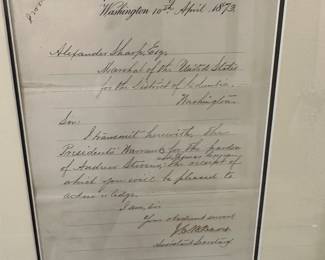 Washington 10th April 1873.
Alexander Sharp, Esq.
Marshal of the United States
for the District of Columbia,
Washington.
Sir:
I transmit herewith the
President's Warrant for the pardon
of Andrew the receipt of
which you will be pleased to
acknowledge.
I am, sir
Your obedient servant
Assistant Secretary